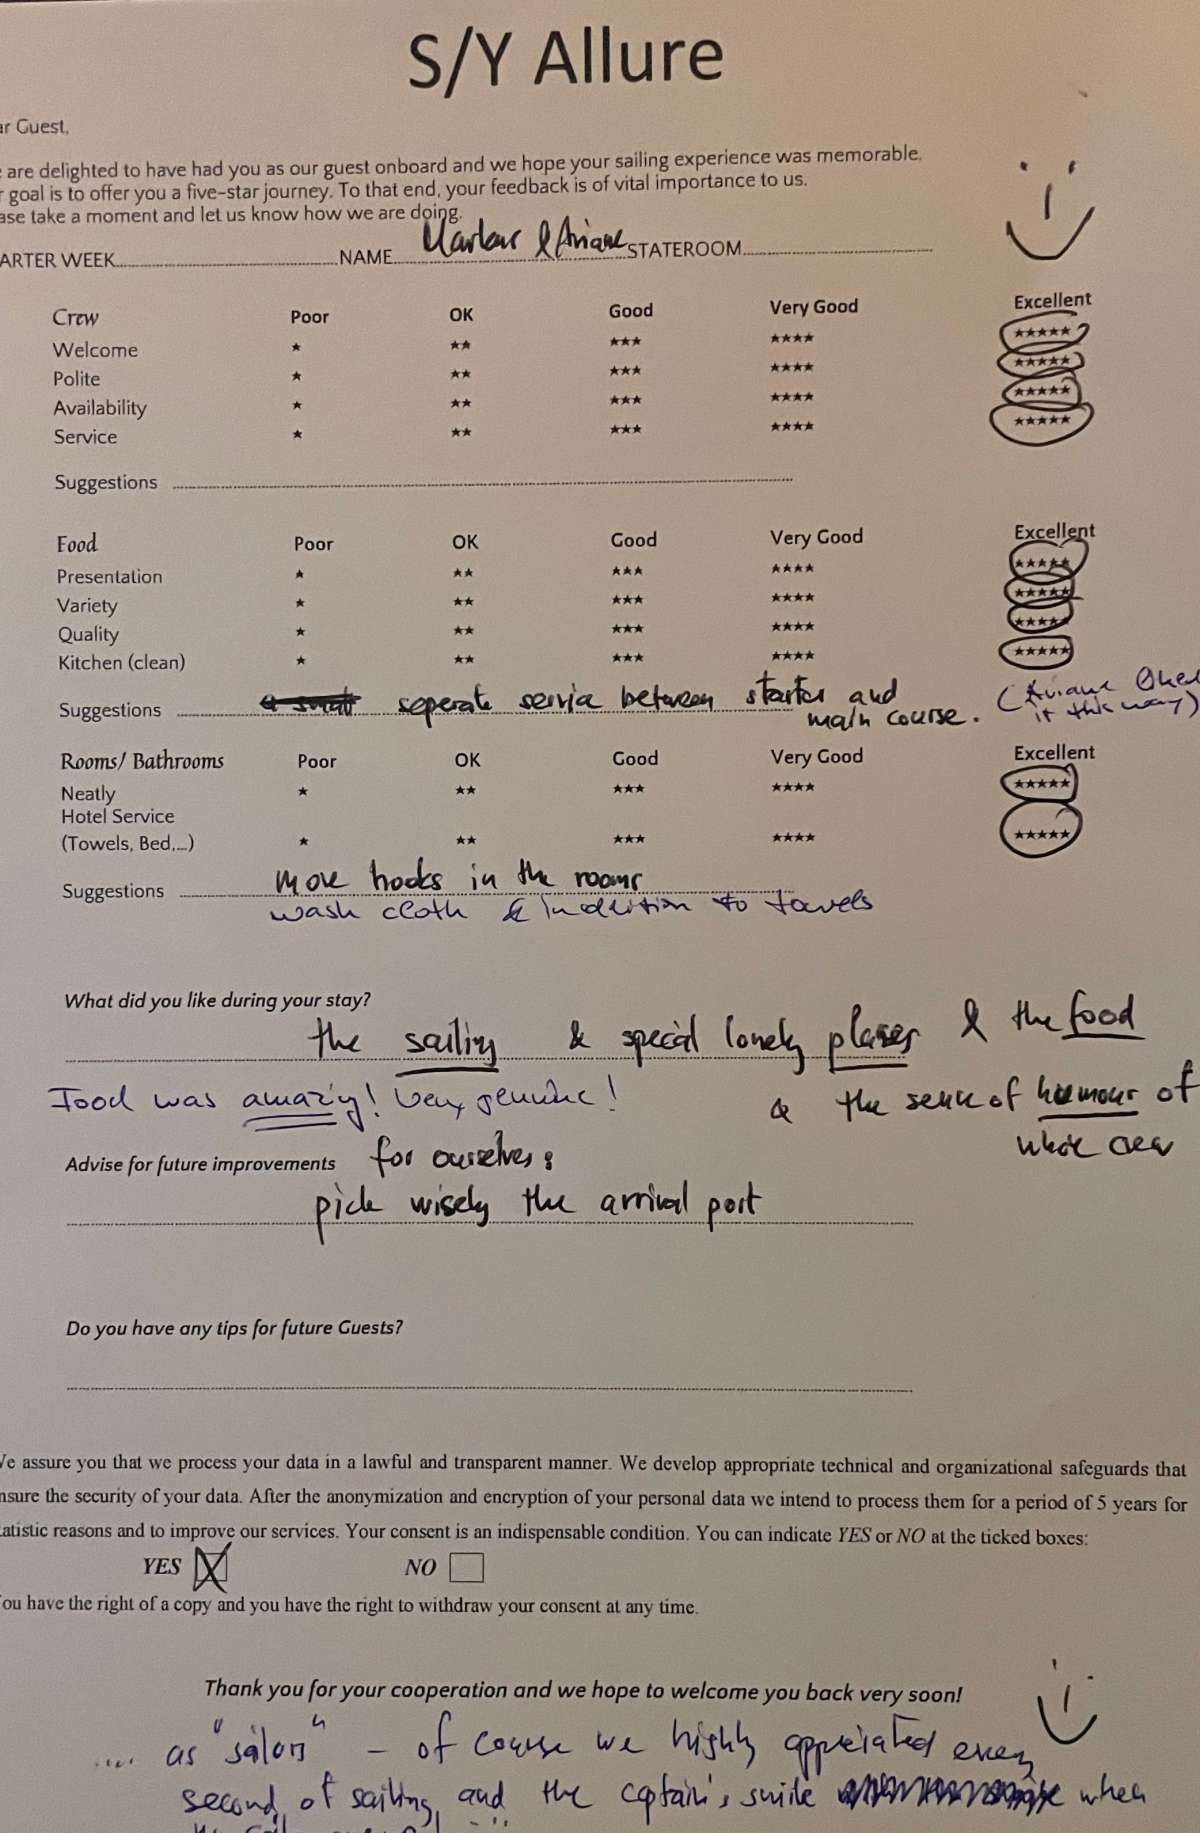 S/Y Allure
ar Guest,
e are delighted to have had you as our guest onboard and we hope your sailing experience was memorable.
r goal is to offer you a five-star journey. To that end, your feedback is of vital importance to us.
ase take a moment and let us know how we are doing.
ARTER WEEK NAME & Ariane STATEROOM
Crew Poor OK Good Very Good Excellent
Welcome ★ ★★ ★★★ ★★★★ ★★★★★
Polite ★ ★★ ★★★ ★★★★ ★★★★★
Availability ★ ★★ ★★★ ★★★★ ★★★★★
Service ★ ★★ ★★★ ★★★★ ★★★★★
Suggestions
Food Poor OK Good Very Good Excellent
Presentation ★ ★★ ★★★ ★★★★ ★★★★★
Variety ★ ★★ ★★★ ★★★★ ★★★★★
Quality ★ ★★ ★★★ ★★★★ ★★★★★
Kitchen (clean) ★ ★★ ★★★ ★★★★ ★★★★★
Suggestions seperate service between starter and
main course. (Ariane liked
it this way)
Rooms/ Bathrooms Poor OK Good Very Good Excellent
Neatly ★ ★★ ★★★ ★★★★ ★★★★★
Hotel Service
(Towels, Bed,...) ★ ★★ ★★★ ★★★★ ★★★★★
Suggestions more hooks in the rooms
wash cloth in addition to towels
What did you like during your stay?
the sailing & special lonely places & the food
Food was amazing! Very genuine!
& the sense of humour of
whole crew
Advise for future improvements for ourselves:
pick wisely the arrival port
Do you have any tips for future Guests?
We assure you that we process your data in a lawful and transparent manner. We develop appropriate technical and organizational safeguards that
nsure the security of your data. After the anonymization and encryption of your personal data we intend to process them for a period of 5 years for
tatistic reasons and to improve our services. Your consent is an indispensable condition. You can indicate YES or NO at the ticked boxes:
YES NO
You have the right of a copy and you have the right to withdraw your consent at any time.
Thank you for your cooperation and we hope to welcome you back very soon!
.... as "sailors" - of course we highly appreciated every
second of sailing and the captain's smile when